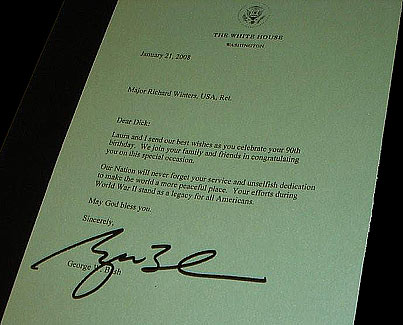 THE WHITE HOUSE
WASHINGTON
January 21, 2008
Major Richard Winters, USA, Ret.
Dear Dick:
Laura and I send our best wishes as you celebrate your 90th
birthday. We join your family and friends in congratulating
you on this special occasion.
Our Nation will never forget your service and unselfish dedication
to make the world a more peaceful place. Your efforts during
World War II stand as a legacy for all Americans.
May God bless you.
Sincerely,
George W. Bush